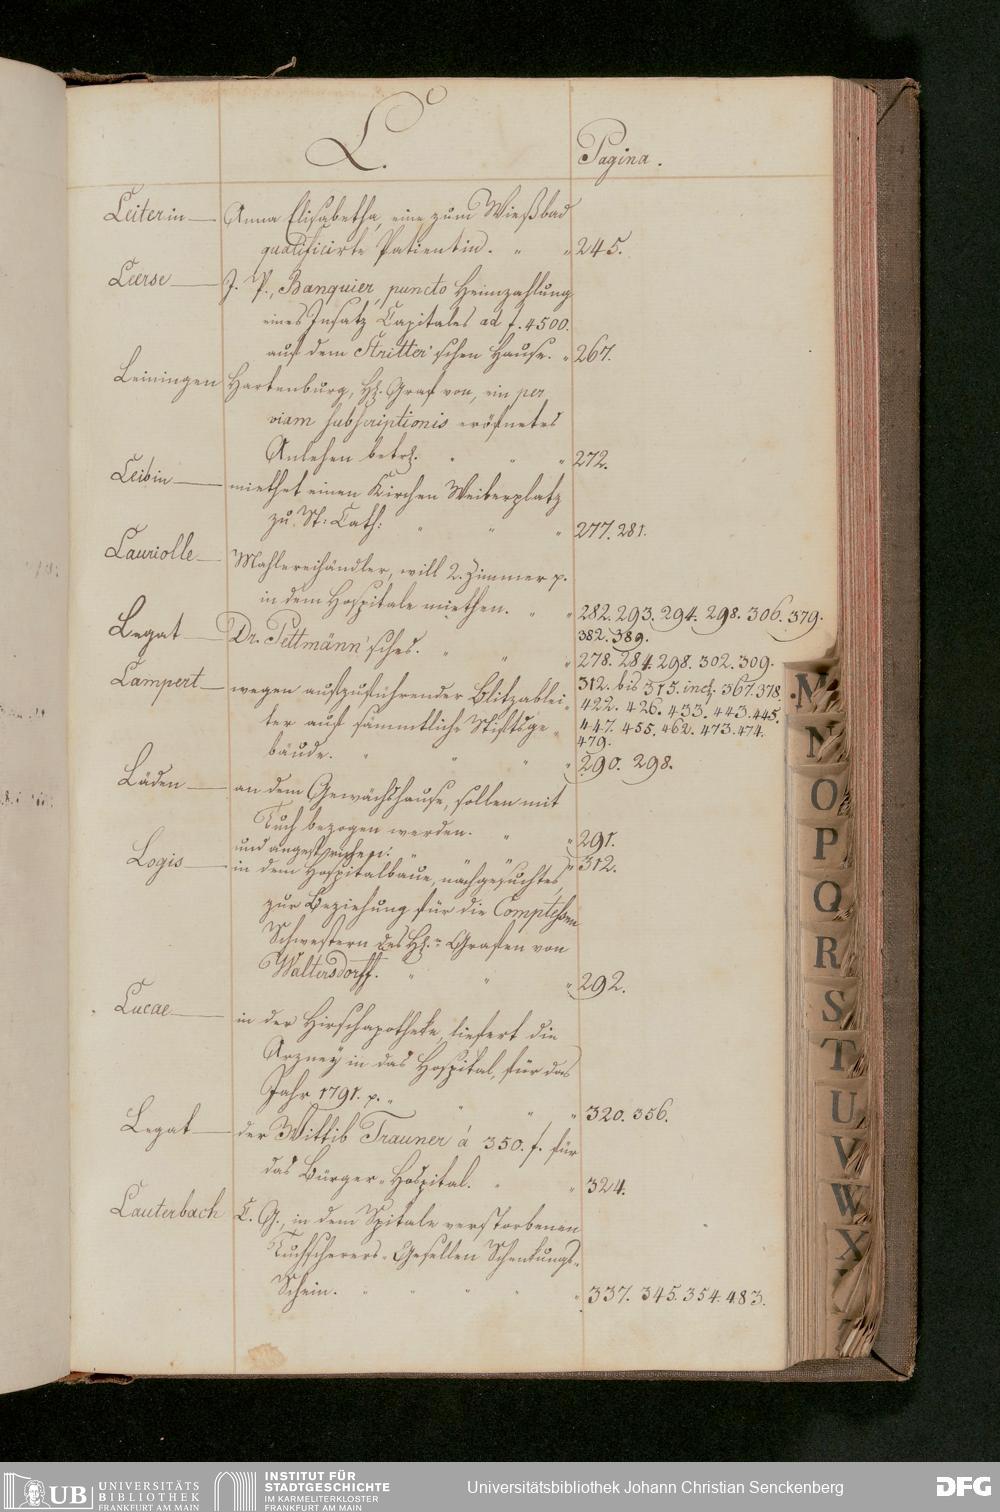 L.
Pagina.
Leiterin — Anna Elisabetha, eine zum Wießbad
qualificirte Patientin. " " 245.
Leerse — J. P., Banquier, puncto Heimzahlung
eines Insatz Capitales ad f. 4500.
auf dem Stritter'schen Hause. " 267.
Leiningen Hartenburg, H. Graf von, ein per
viam subscriptionis eröfnetes
Anlehen betr. " " " 272.
Leibin — miethet einen Kirchen Weiberplatz
zu St: Cath: " " " 277. 281.
Lauriolle — Mahlereihändler, will 2. Zimmer p.
in dem Hospitale miethen. " " 282. 293. 294. 298. 306. 379.
382. 389.
Legat — Dr. Pettmänn'sches. " " " 278. 284. 298. 302. 309.
312. bis 315. incl. 367. 378.
Lampert — wegen aufzuführender Blitzablei- 422. 426. 433. 443. 445.
ter auf sämmtliche Stiftsge- 447. 455. 462. 473. 474.
479.
bäude. " " " " 290. 298.
Läden — an dem Gewächshause, sollen mit
Tuch bezogen werden. " " 291.
und angestrichen. " " " " 312.
Logis — in dem Hospitalbaue, nachgesuchtes,
zur Beziehung für die Comptessen
Schwestern des H. Grafen von
Waltersdorff. " " " 292.
Lucae — in der Hirschapotheke, liefert die
Arzney in das Hospital, für das
Jahr 1791. p. " " " " 320. 356.
Legat — der Wittib Trauner á 350. f. für
das Bürger-Hospital. " " 324.
Lauterbach C. G., in dem Spitale verstorbenen
Tuchscherers-Gesellen Schenkungs-
Schein. " " " " " 337. 345. 354. 483.
M
N
O
P
Q
R
S
T
U
V
W
X
UB UNIVERSITÄTS
BIBLIOTHEK
FRANKFURT AM MAIN
INSTITUT FÜR
STADTGESCHICHTE
IM KARMELITERKLOSTER
FRANKFURT AM MAIN
Universitätsbibliothek Johann Christian Senckenberg
DFG